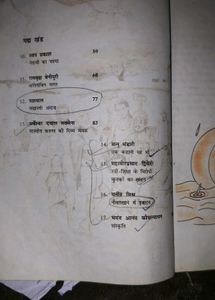 गद्य खंड
10. स्वयं प्रकाश 59
नेताजी का चश्मा
11. रामवृक्ष बेनीपुरी 68
बालगोबिन भगत
12. यशपाल 77
लखनवी अंदाज़
13. सर्वेश्वर दयाल सक्सेना 83
मानवीय करुणा की दिव्य चमक
14. मन्नू भंडारी
एक कहानी यह भी
15. महावीरप्रसाद द्विवेदी
स्त्री-शिक्षा के विरोधी
कुतर्कों का खंडन
16. यतींद्र मिश्र
नौबतखाने में इबादत
17. भदंत आनंद कौसल्यायन
संस्कृति